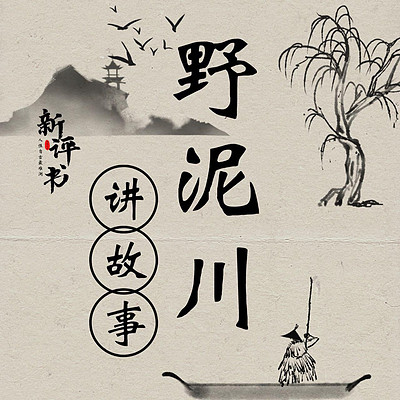 野泥川
讲故事
新评书